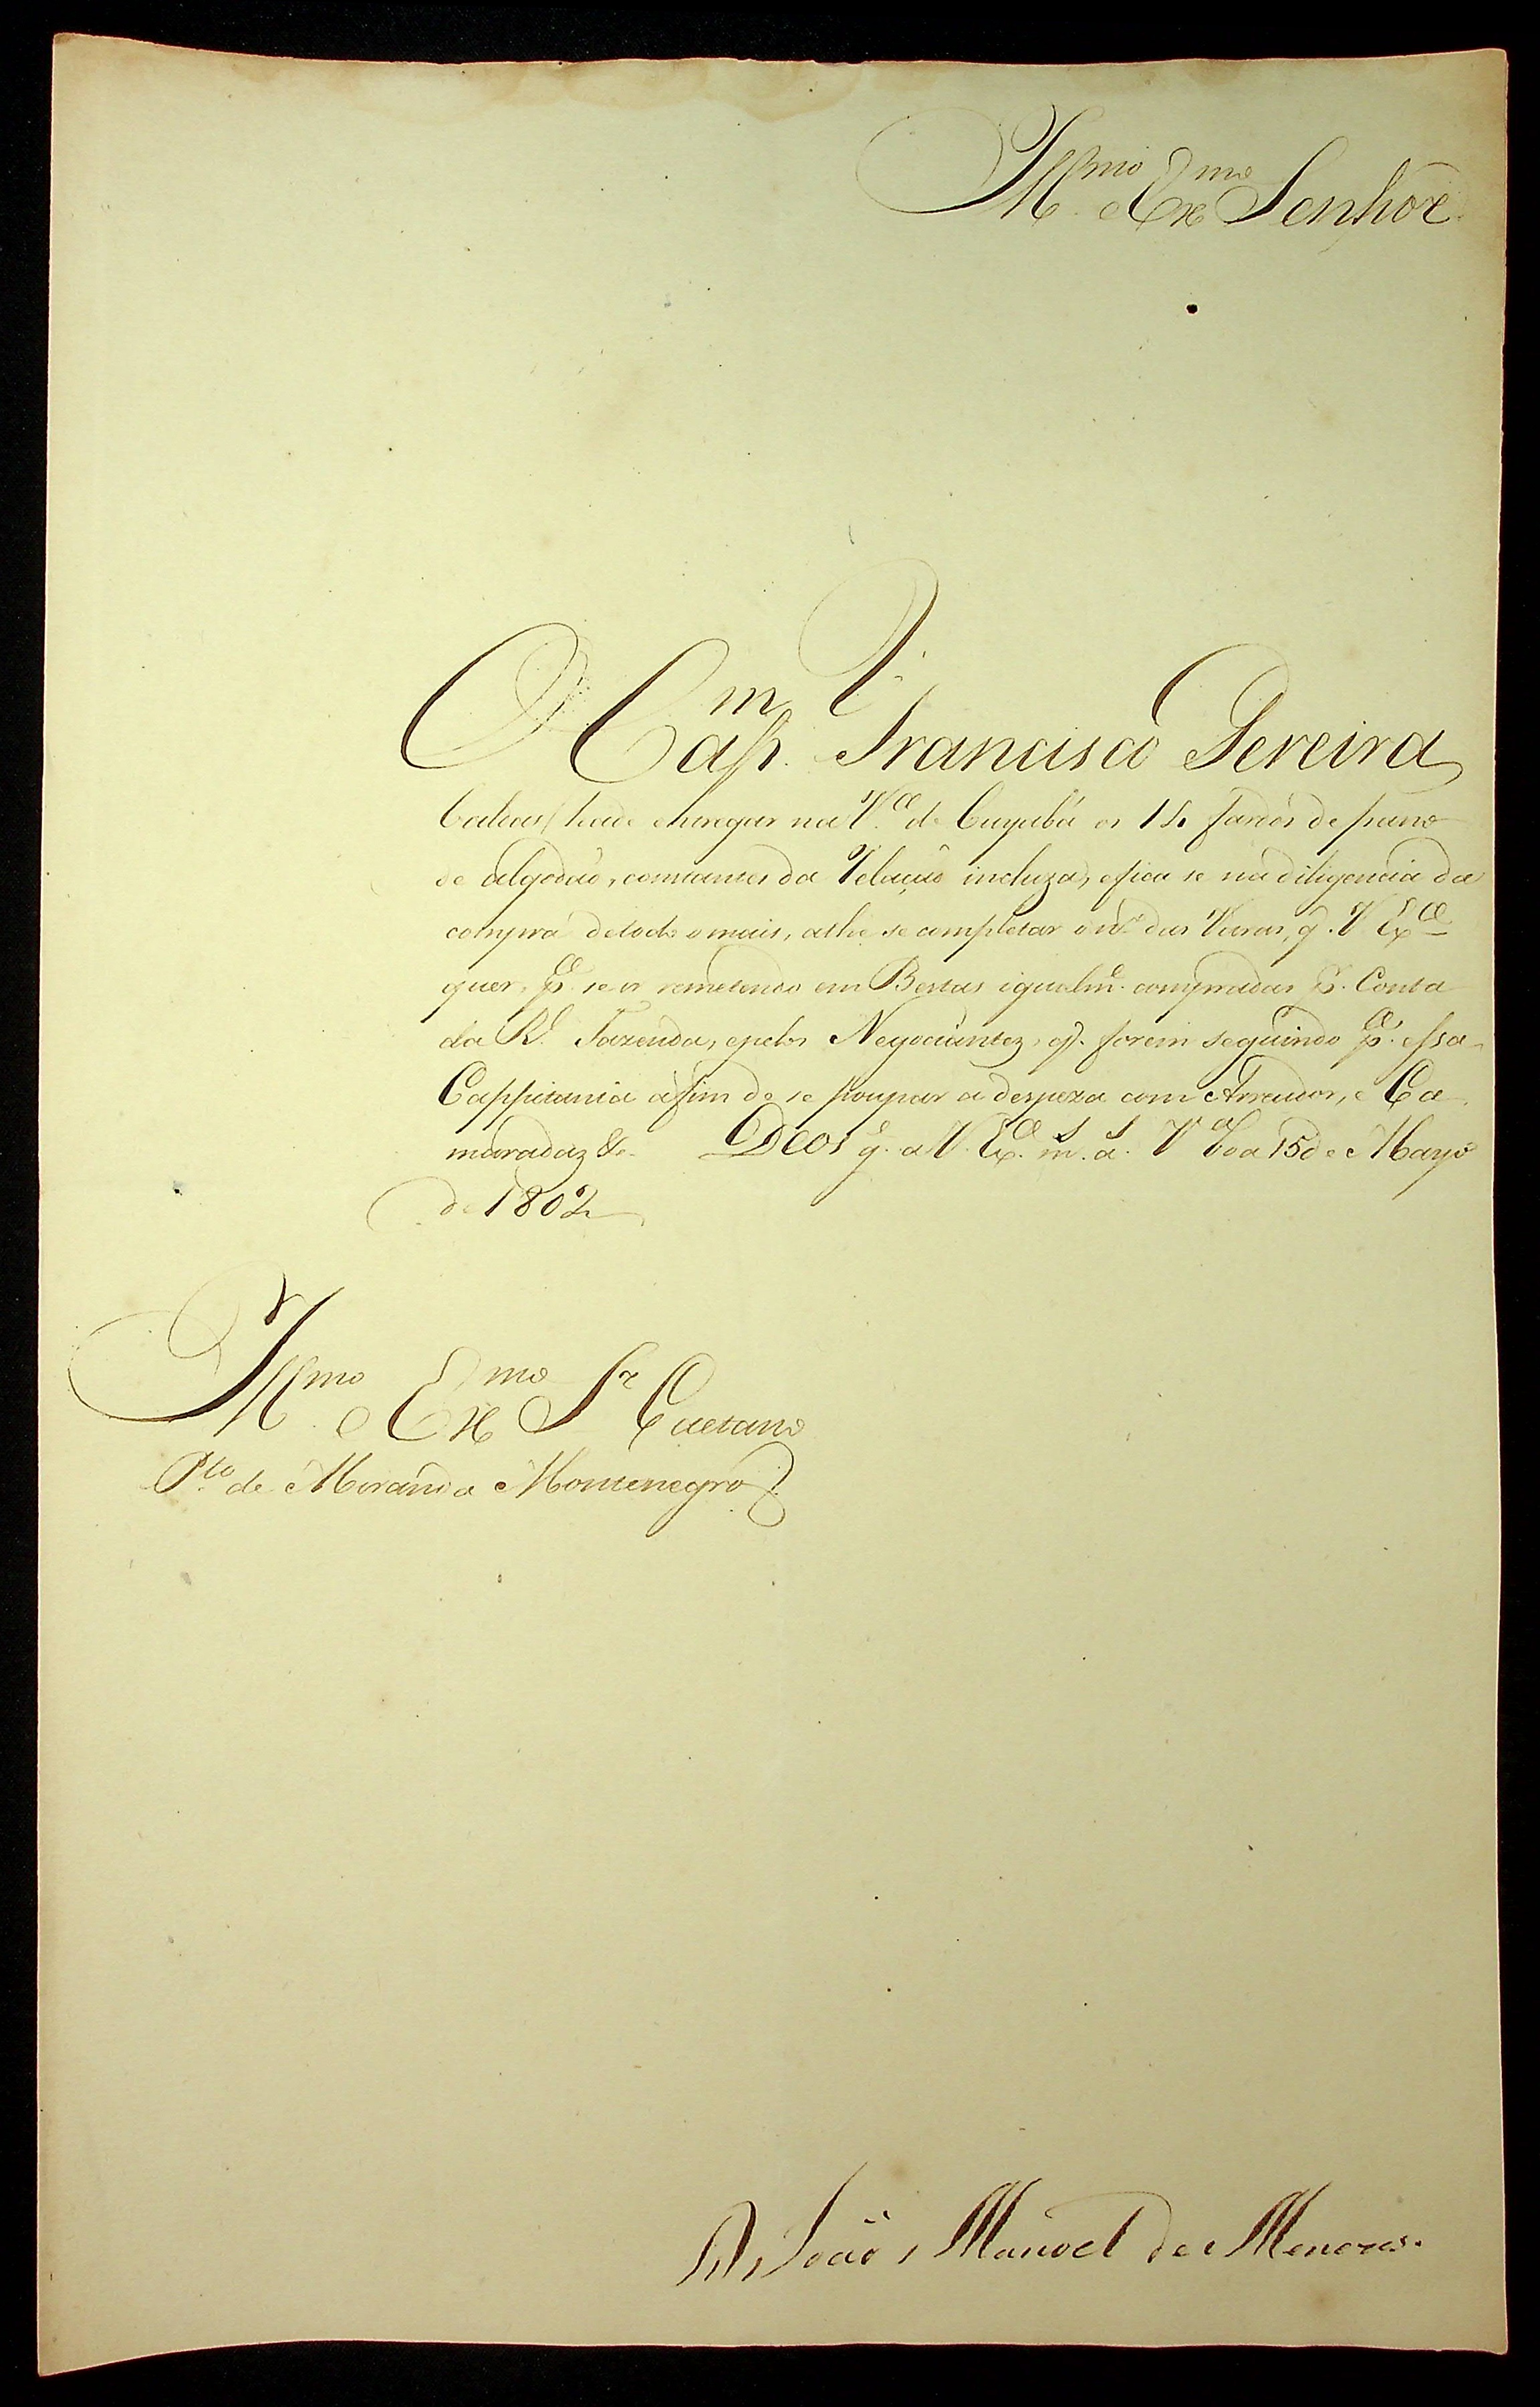 Ill.mo e Ex.mo Senhor
O Cap.m Francisco Pereira
Caldas hade entregar na V.a de Cuyabá os 14 fardos de pano
de algodaõ, constantes da Relaçaõ incluza, e fica se na diligencia da
compra de todo o mais, athe se completar o n.o das Varas, q. V. Ex.ca
quer, p.a se ir remetendo em Bestas igualm.e compradas p.r Conta
da R.l Fazenda, e pelos Negociantez, q. forem seguindo p.a essa
Cappitania afim de se poupar a despeza com Arreador, e Ca
maradaz &.a Deos g.e a V. Ex.ca m.s a.s V.a Boa 15 de Mayo
de 1802
Ill.mo e Ex.mo S.r Caetano
P.to de Miranda Montenegro
D. Joaõ Manoel de Menezes.